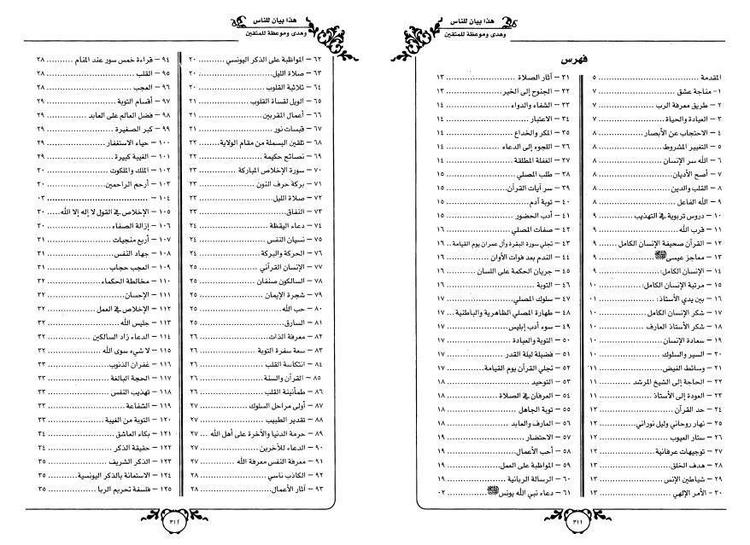 هذا بيان للناس
وهدى وموعظة للمتقين
فهرس
المقدمة ٥
١ - مناجة عشق ٧
٢ - طريق معرفة الرب ٧
٣ - العبادة والحياة ٧
٤ - الاحتجاب عن الأبصار ٨
٥ - التغيير المشروط ٨
٦ - الله سر الإنسان ٨
٧ - أصح الأديان ٨
٨ - القلب والدين ٨
٩ - الله الفاعل ٨
١٠ - دروس تربوية في التهذيب ٩
١١ - قرب الله ٩
١٢ - القرآن صحيفة الإنسان الكامل ٩
١٣ - معاجز عيسى ٩
١٤ - الإنسان الكامل ٩
١٥ - مرتبة الإنسان الكامل ١٠
١٦ - بين يدي الأستاذ ٠١
١٧ - شكر الإنسان الكامل ١٠
١٨ - شكر الأستاذ العارف ١٠
١٩ - سعادة الإنسان ١٠
٢٠ - السير والسلوك ١٠
٢١ - وسائط الفيض ١١
٢٢ - الحاجة إلى الشيخ المرشد ١١
٢٣ - العودة إلى الأستاذ ١١
٢٤ - حد القرآن ١٢
٢٥ - نهار روحاني وليل نوراني ١٢
٢٦ - ستار العيوب ١٢
٢٧ - توجيهات عرفانية ١٢
٢٨ - هدف الخلق ١٣
٢٩ - شياطين الإنس ١٣
٣٠ - الأمر الإلهي ١٣
٣١ - آثار الصلاة ١٣
٣٢ - الجنوح إلى الخير ١٣
٣٣ - الشفاء والدواء ١٤
٣٤ - الاعتبار ١٤
٣٥ - المكر والخداع ١٤
٣٦ - اللجوء إلى الدعاء ١٤
٣٧ - الغفلة المطلقة ١٤
٣٨ - طلب المصلي ١٥
٣٩ - سر آيات القرآن ١٥
٤٠ - توبة آدم ١٥
٤١ - أدب الحضور ١٥
٤٢ - صفات المصلي ١٦
٤٣ - تجلي سورة البقرة وآل عمران يوم القيامة ١٦
٤٤ - الندم بعد فوات الأوان ١٦
٤٥ - جريان الحكمة على اللسان ١٦
٤٦ - التوبة ١٦
٤٧ - سلوك المصلي ١٧
٤٨ - طهارة المصلي الظاهرية والباطنية ١٧
٤٩ - سوء أدب إبليس ١٧
٥٠ - التوبة والعبادة ١٧
٥١ - فضيلة ليلة القدر ١٧
٥٢ - تجلي القرآن يوم القيامة ١٧
٥٣ - التوحيد ١٨
٥٤ - العرفان في الصلاة ١٨
٥٥ - توبة الجاهل ١٨
٥٦ - العارف والعابد ١٨
٥٧ - الاحتضار ١٩
٥٨ - أحب الأعمال ١٩
٥٩ - المواظبة على العمل ١٩
٦٠ - الرسالة الربانية ١٩
٦١ - دعاء نبي الله يونس ٠٢
٣١١
هذا بيان للناس
وهدى وموعظة للمتقين
٦٢ - المواظبة على الذكر اليونسي ٢٠
٦٣ - صلاة الليل ٢٠
٦٤ - ثلاثية القلوب ٢٠
٦٥ - الويل لقساة القلوب ٢١
٦٦ - أعمال المقربين ٢١
٦٧ - قبسات نور ٢١
٦٨ - تلقين البسملة من مقام الولاية ٢٢
٦٩ - نصائح حكيمة ٢٢
٧٠ - سورة الإخلاص المباركة ٢٣
٧١ - بركة حرف النون ٢٣
٧٢ - صلاة الليل ٢٣
٧٣ - النفاق ٢٣
٧٤ - دعاء اليقظة ٢٤
٧٥ - نسيان النفس ٢٤
٧٦ - الحركة والبركة ٢٤
٧٧ - الإنسان القرآني ٢٥
٧٨ - السالكون صنفان ٢٥
٧٩ - شجرة الإيمان ٢٥
٨٠ - حب الله ٢٥
٨١ - السارق ٢٥
٨٢ - معرفة الذات ٢٦
٨٣ - سعة سفرة التوبة ٢٦
٨٤ - انتكاسة القلب ٢٦
٨٥ - القرآن والسنة ٢٦
٨٦ - طمأنينة القلب ٢٦
٨٧ - أولى مراحل السلوك ٢٧
٨٨ - تقدير الطبيب ٢٧
٨٩ - حرمة الدنيا والآخرة على أهل الله ٢٧
٩٠ - الدعاء للآخرين ٢٧
٩١ - معرفة النفس معرفة الله ٢٧
٩٢ - الكاذب ناسي ٢٨
٩٣ - آثار الأعمال ٢٨
٩٤ - قراءة خمس سور عند المنام ٢٨
٩٥ - القلب ٢٨
٩٦ - العجب ٢٨
٩٧ - أقسام التوبة ٢٩
٩٨ - فضل العالم على العابد ٢٩
٩٩ - كبر الصغيرة ٢٩
١٠٠ - حياء الاستغفار ٢٩
١٠١ - الغيبة كبيرة ٢٩
١٠٢ - الملك والملكوت ٣٠
١٠٣ - أرحم الراحمين ٣٠
١٠٤ - ٠٣
١٠٥ - الإخلاص في القول لا إله إلا الله ٣٠
١٠٦ - إزالة الصفاء ٣٠
١٠٧ - أربع منجيات ٣١
١٠٨ - جهاد النفس ٣١
١٠٩ - العجب حجاب ٣١
١١٠ - مخالطة الحكماء ٣٢
١١١ - الإحسان ٣٢
١١٢ - الإخلاص في العمل ٣٢
١١٣ - جليس الله ٣٢
١١٤ - الدعاء زاد السالكين ٣٢
١١٥ - لا شيء سوى الله ٣٣
١١٦ - غفران الذنوب ٣٣
١١٧ - الحجة البالغة ٣٣
١١٨ - تهذيب النفس ٣٣
١١٩ - الشفاعة ٣٣
١٢٠ - التوبة من الغيبة ٣٣
١٢١ - بكاء العاشق ٣٤
١٢٢ - حقيقة الذكر ٣٤
١٢٣ - الذكر الشريف ٣٥
١٢٤ - الاستعانة بالذكر اليونسية ٣٥
١٢٥ - فلسفة تحريم الربا ٣٥
٣١٢